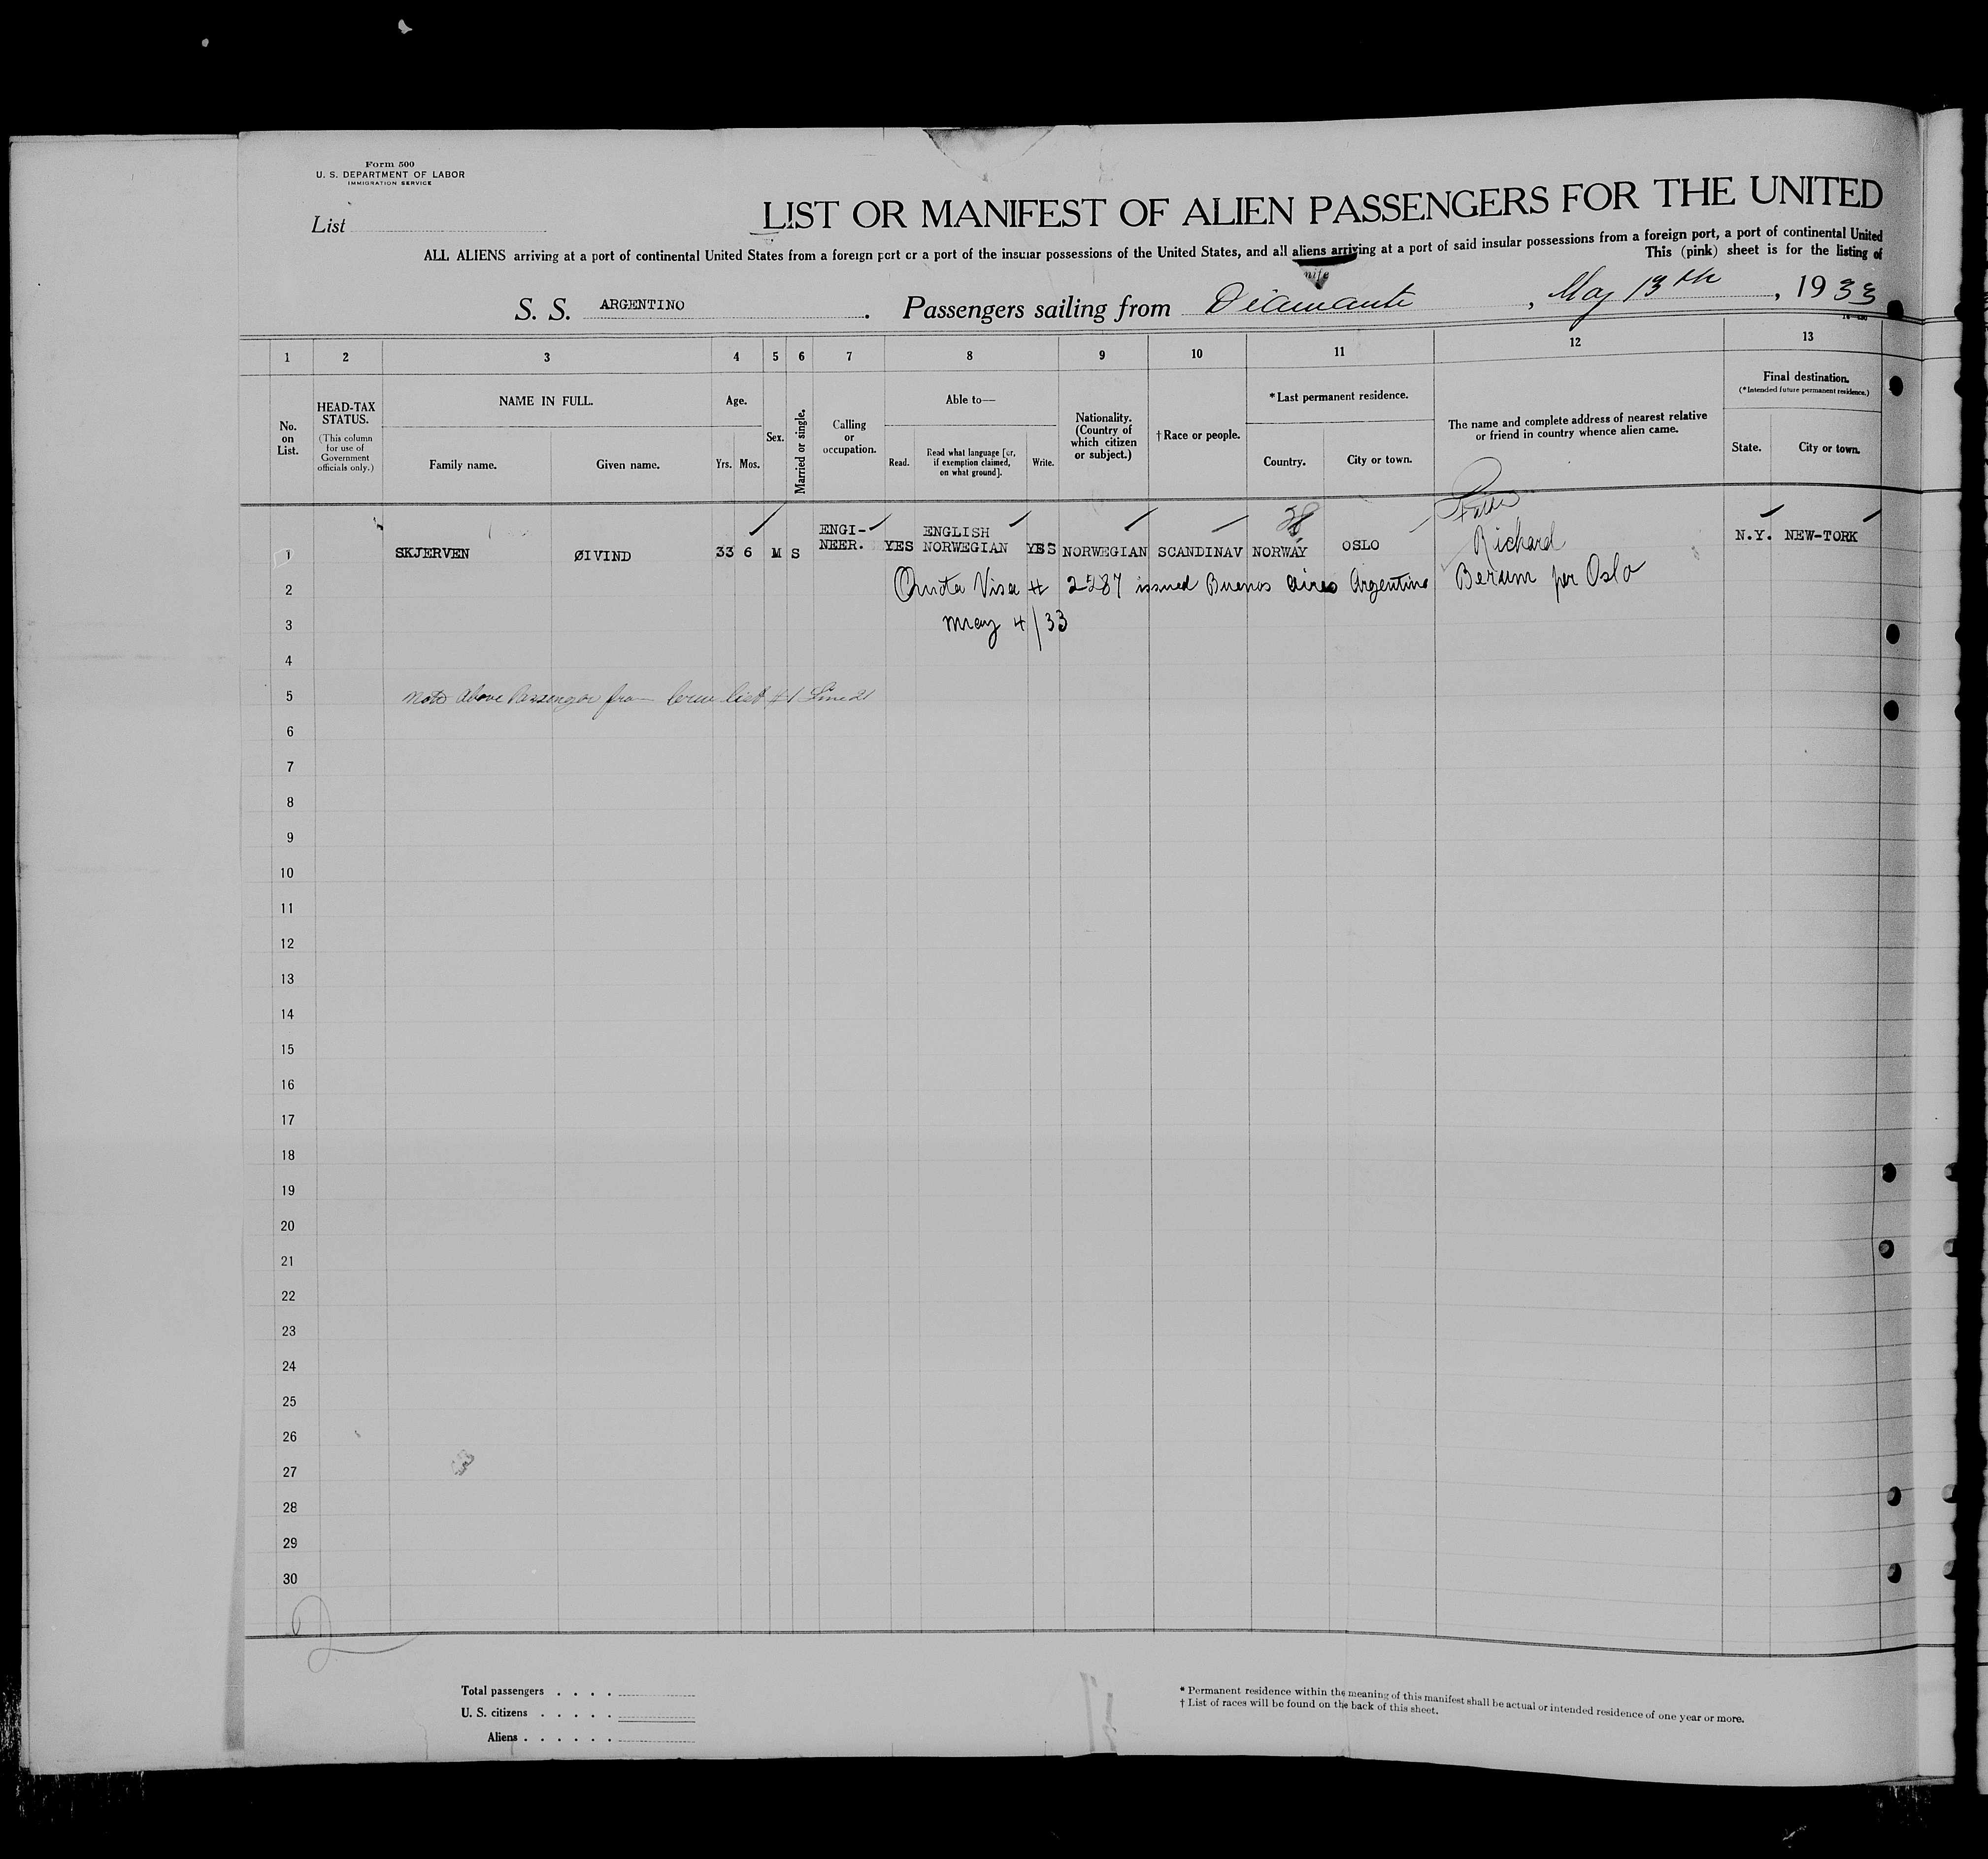 Form 500
U. S. DEPARTMENT OF LABOR
IMMIGRATION SERVICE
List
LIST OR MANIFEST OF ALIEN PASSENGERS FOR THE UNITED
ALL ALIENS arriving at a port of continental United States from a foreign port or a port of the insular possessions of the United States, and all aliens arriving at a port of said insular possessions from a foreign port, a port of continental United
This (pink) sheet is for the listing of
S. S. ARGENTINO. Passengers sailing from Diamante, May 13th, 1933
1 2 3 4 5 6 7 8 9 10 11 12 13
No. on List.
HEAD-TAX STATUS.
(This column for use of Government officials only.)
NAME IN FULL.
Family name. Given name.
Age.
Yrs. Mos.
Sex.
Married or single.
Calling or occupation.
Able to—
Read. Read what language [or, if exemption claimed, on what ground]. Write.
Nationality. (Country of which citizen or subject.)
† Race or people.
* Last permanent residence.
Country. City or town.
The name and complete address of nearest relative or friend in country whence alien came.
Final destination.
(* Intended future permanent residence.)
State. City or town.
1 SKJERVEN ØIVIND 33 6 M S ENGI-NEER. YES ENGLISH NORWEGIAN YES NORWEGIAN SCANDINAV NORWAY OSLO Father Richard N.Y. NEW-TORK
2 Quota Visa # 2287 issued Buenos Aires Argentina Berum per Oslo
3 May 4/33
4
5 Note above Passenger from Crew list #1 Line 21
6
7
8
9
10
11
12
13
14
15
16
17
18
19
20
21
22
23
24
25
26
27
28
29
30
Total passengers . . . .
U. S. citizens . . . . .
Aliens . . . . . .
* Permanent residence within the meaning of this manifest shall be actual or intended residence of one year or more.
† List of races will be found on the back of this sheet.